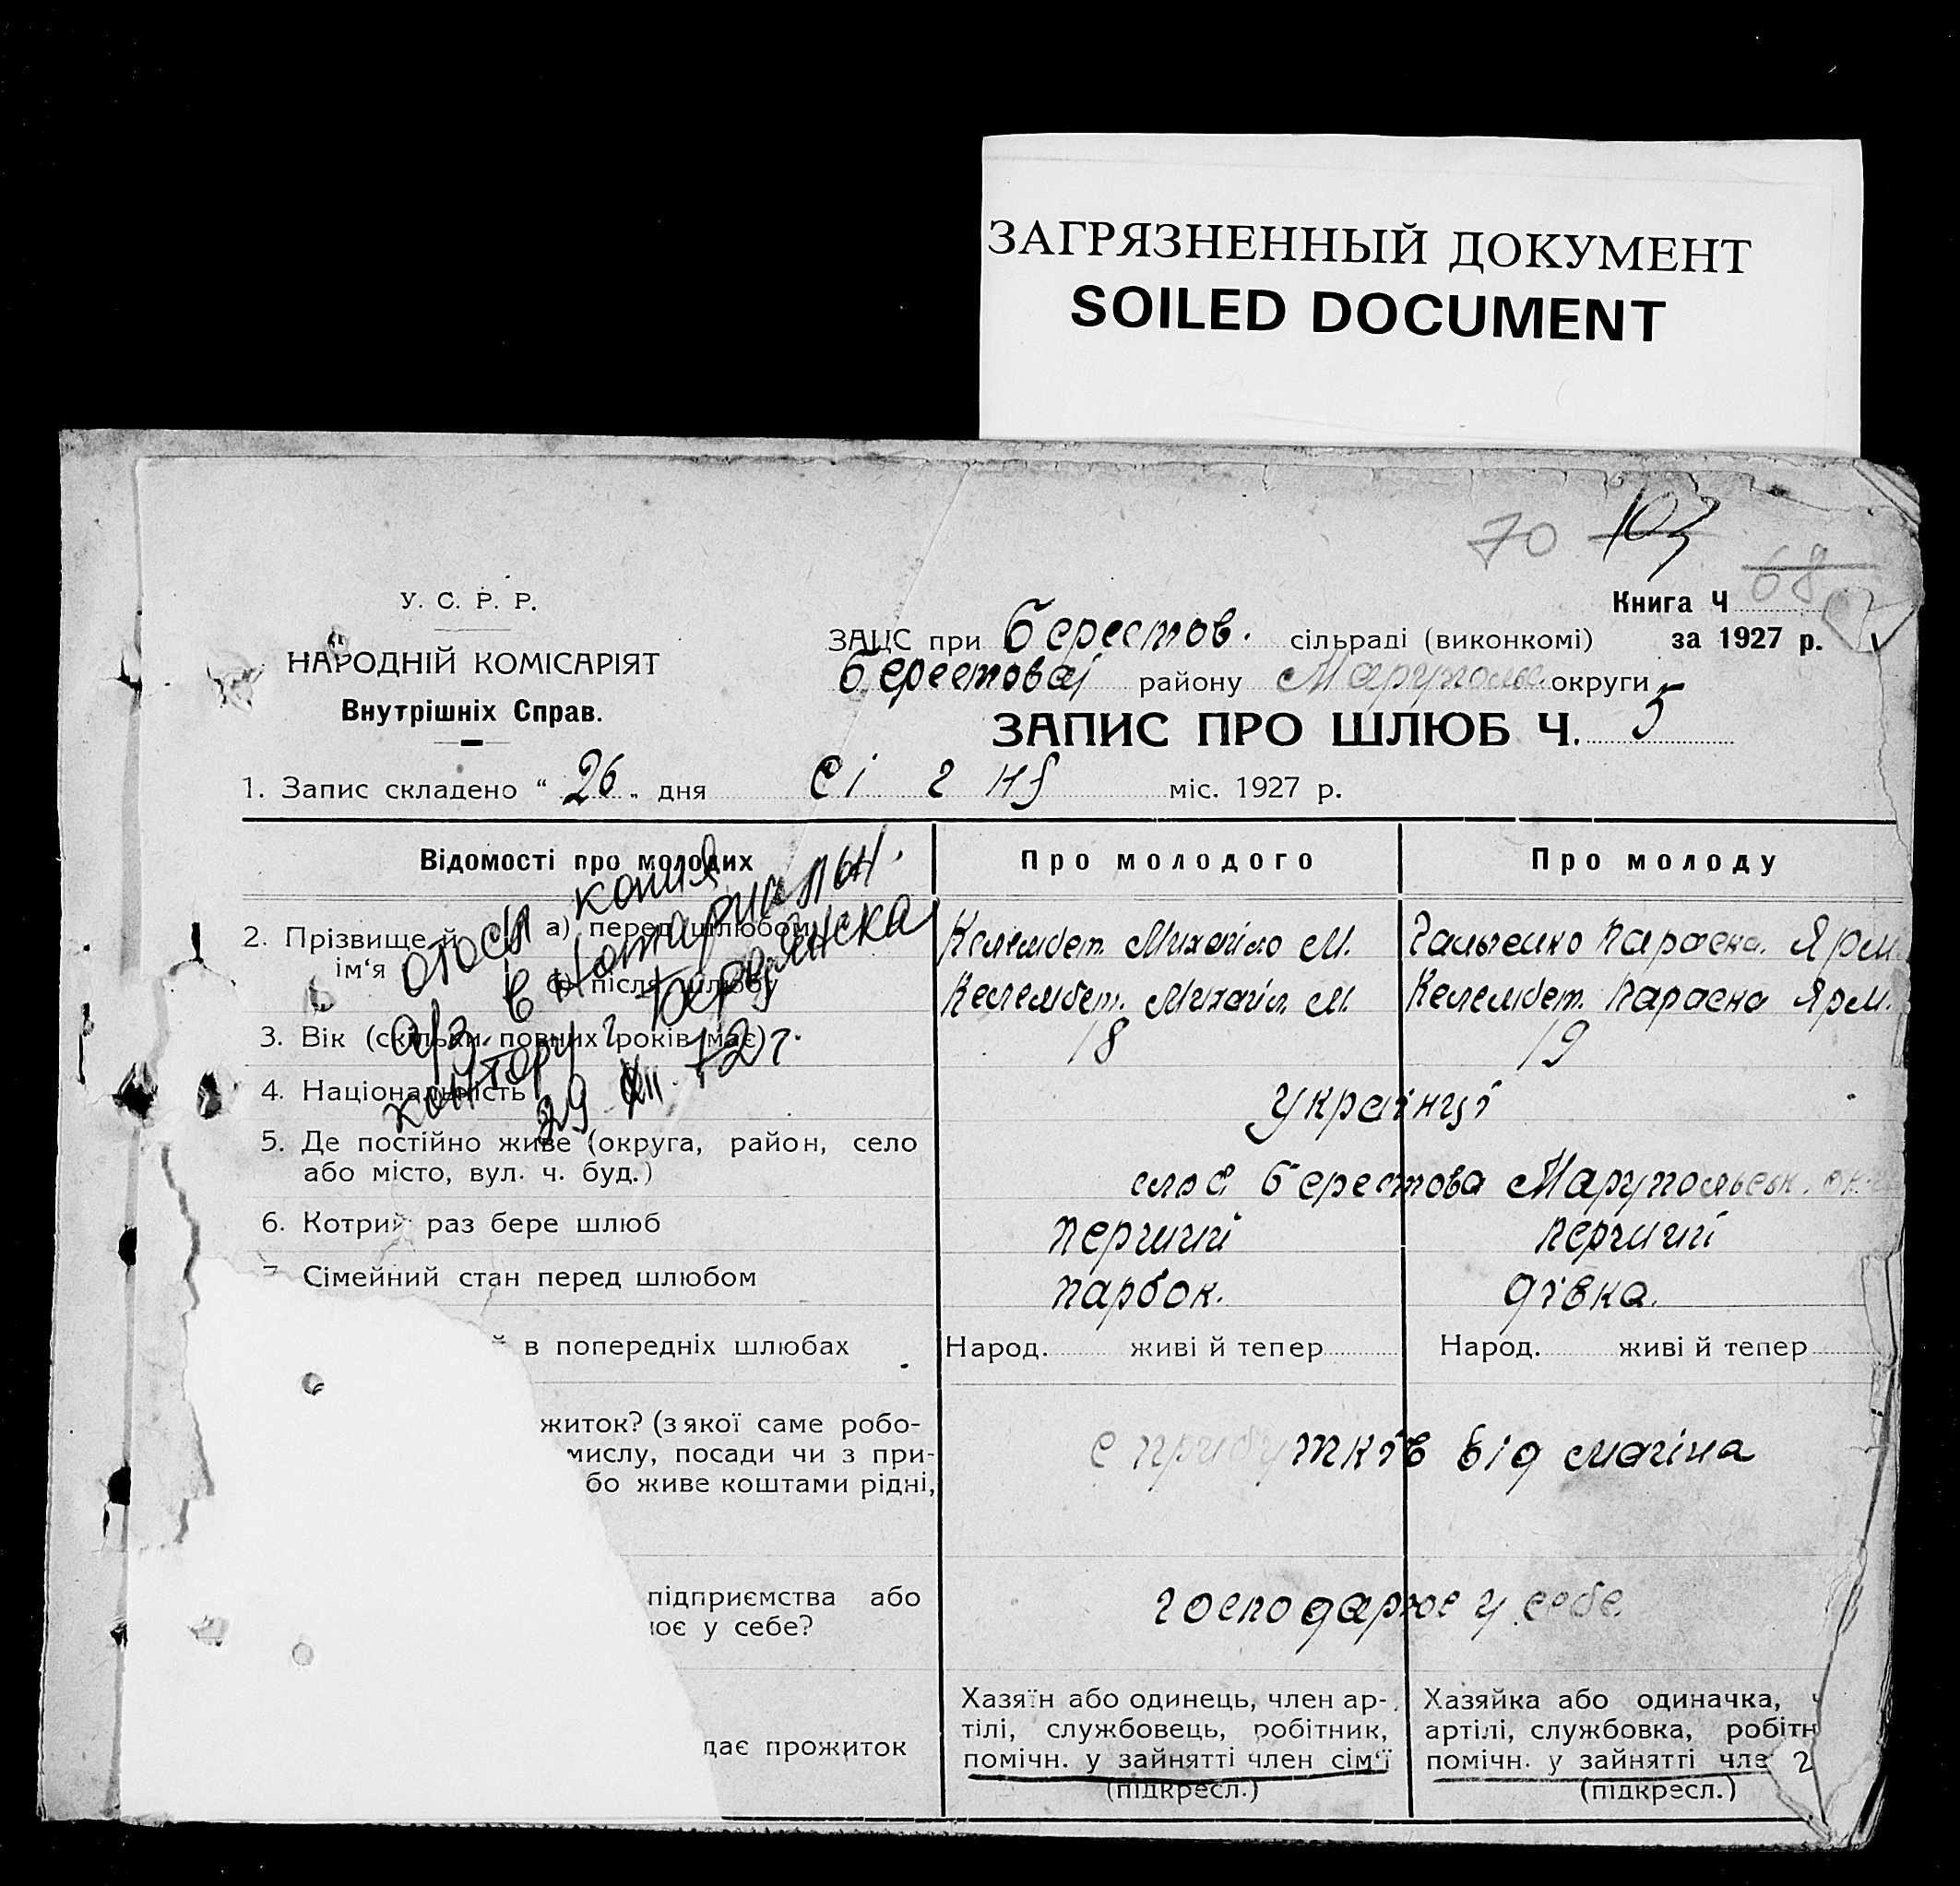 ЗАГРЯЗНЕННЫЙ ДОКУМЕНТ
SOILED DOCUMENT
70 103
68
У. С. Р. Р.
НАРОДНІЙ КОМІСАРІЯТ
Внутрішніх Справ.
Книга Ч
за 1927 р.
ЗАЦС при Берестов. сільраді (виконкомі)
Берестової району Маруполь. округи
ЗАПИС ПРО ШЛЮБ Ч. 5
1. Запис складено “ 26 „ дня сі г ня міс. 1927 р.
Відомості про молодих
Про молодого
Про молоду
2. Прізвище й ім‘я
а) перед шлюбом
Келембет. Михайло М.
Галысико Параска. Ярм.
б) після шлюбу
Келембет. Михайл. М.
Келембет. Параска Ярм.
3. Вік (скільки повних років має)
18
19
4. Національність
українці
5. Де постійно живе (округа, район, село
або місто, вул. ч. буд.)
слоб Берестова Марупольськ. ок
6. Котрий раз бере шлюб
перший
перший
Сімейний стан перед шлюбом
парбок.
дівка.
й в попередніх шлюбах
Народ. живі й тепер
Народ. живі й тепер
житок? (з якої саме робо-
мислу, посади чи з при-
бо живе коштами рідні,
с прибутків від магіна
підприємства або
ює у себе?
господарює у себе
дає прожиток
Хазяїн або одинець, член ар-
тілі, службовець, робітник,
помічн. у зайнятті член сім‘ї
(підкресл.)
Хазяйка або одиначка, ч
артілі, службовка, робітн
помічн. у зайнятті чле 2
(підкресл.)
отосл копия
в нотариальн.
контору г Бердянска
29 XII 72 г.